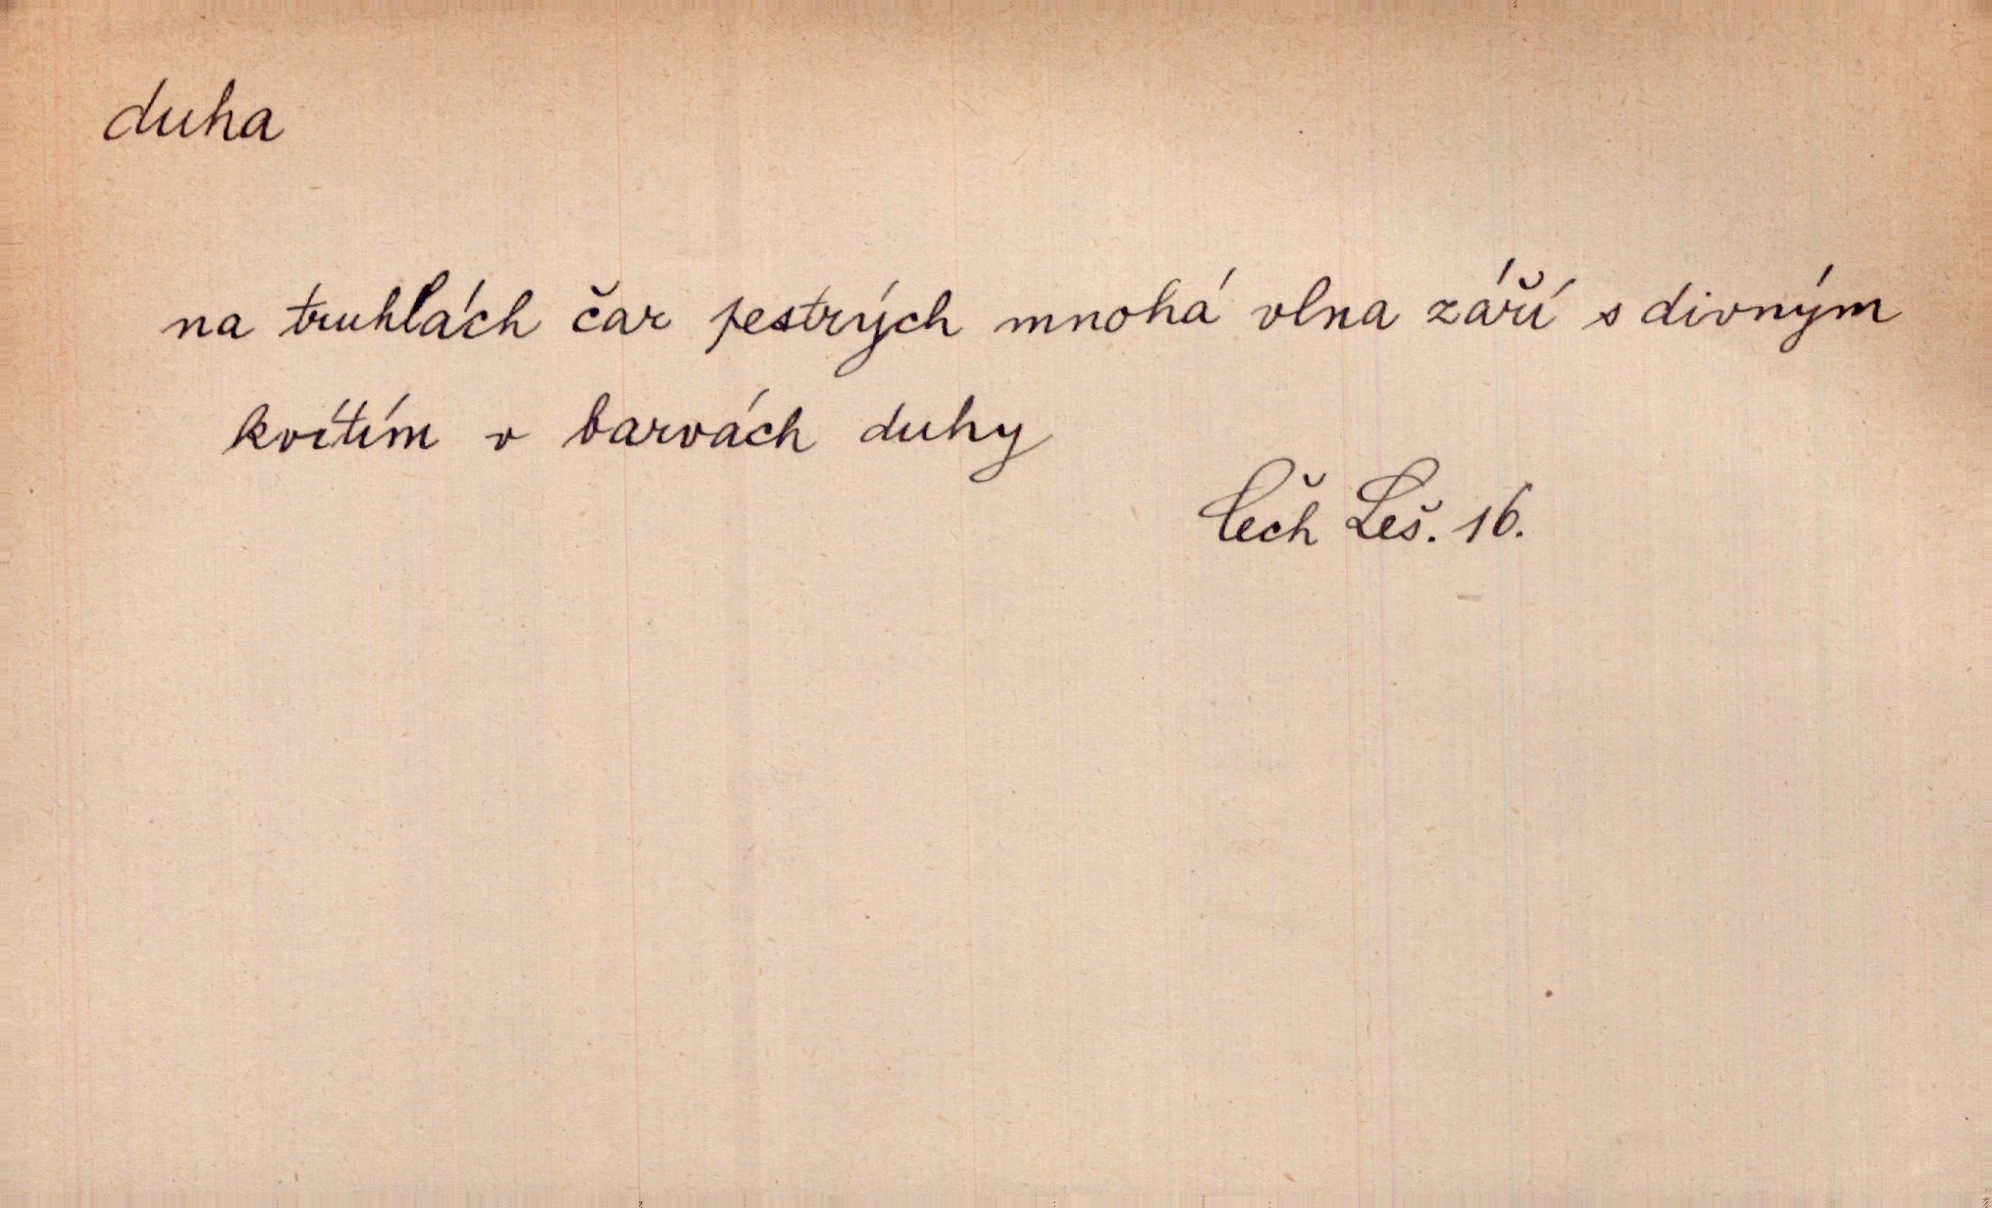 duha
na truhlách čar pestrých mnohá vlna září s divným
kvítím v barvách duhy
Čech Leš. 16.